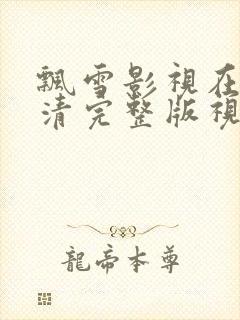 飄雪影視在
清完整版視
龍帝本尊